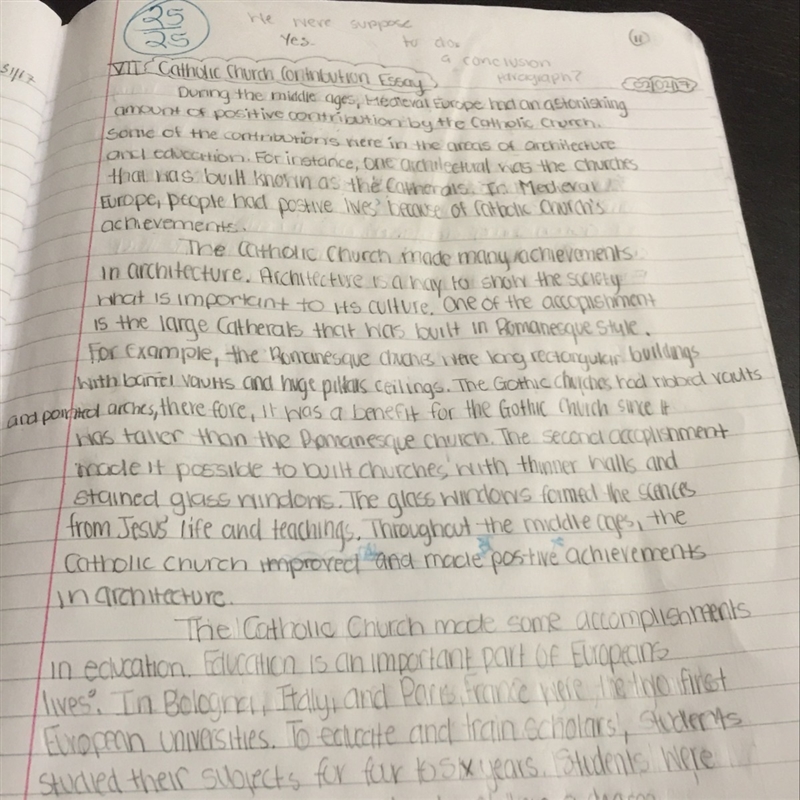 25
25
We were suppose
Yes. to do
a conclusion
paragraph?
11
51/17
VII: Catholic Church Contribution Essay
02/02/17
During the middle ages, Medieval Europe had an astonishing
amount of positive contribution by the Catholic Church.
Some of the contributions were in the areas of architecture
and education. For instance, one architectual was the churches
that was built known as the Catherals. In Medieval
Europe, people had postive lives' because of Catholic Church's
achievements.
The Catholic Church made many achievements
in architecture. Architecture is a way to show the society
what is important to its culture. One of the accoplishment
is the large Catherals that was built in Romanesque style.
For Example, the Romanesque churches were long rectangular buildings
with barrel vaults and huge pillars ceilings. The Gothic churches had ribbed vaults
and pointed arches, there fore, it was a benefit for the Gothic Church since it
was taller than the Romanesque church. The second accoplishment
made it possible to built churches' with thinner walls and
stained glass windows. The glass windows formed the scences
from Jesus' life and teachings. Throughout the middle ages, the
Catholic church improved and made postive achievements
in architecture.
The Catholic Church made some accomplishments
in education. Education is an important part of Europeans
lives'. In Bologna, Italy, and Paris, France were the two first
European universities. To educate and train scholars', students
studied their subjects for four to six years. Students were